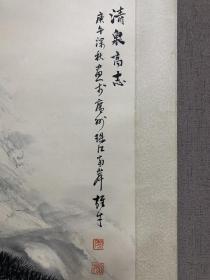 清泉高志
庚午深秋画于广州珠江南岸 雄才